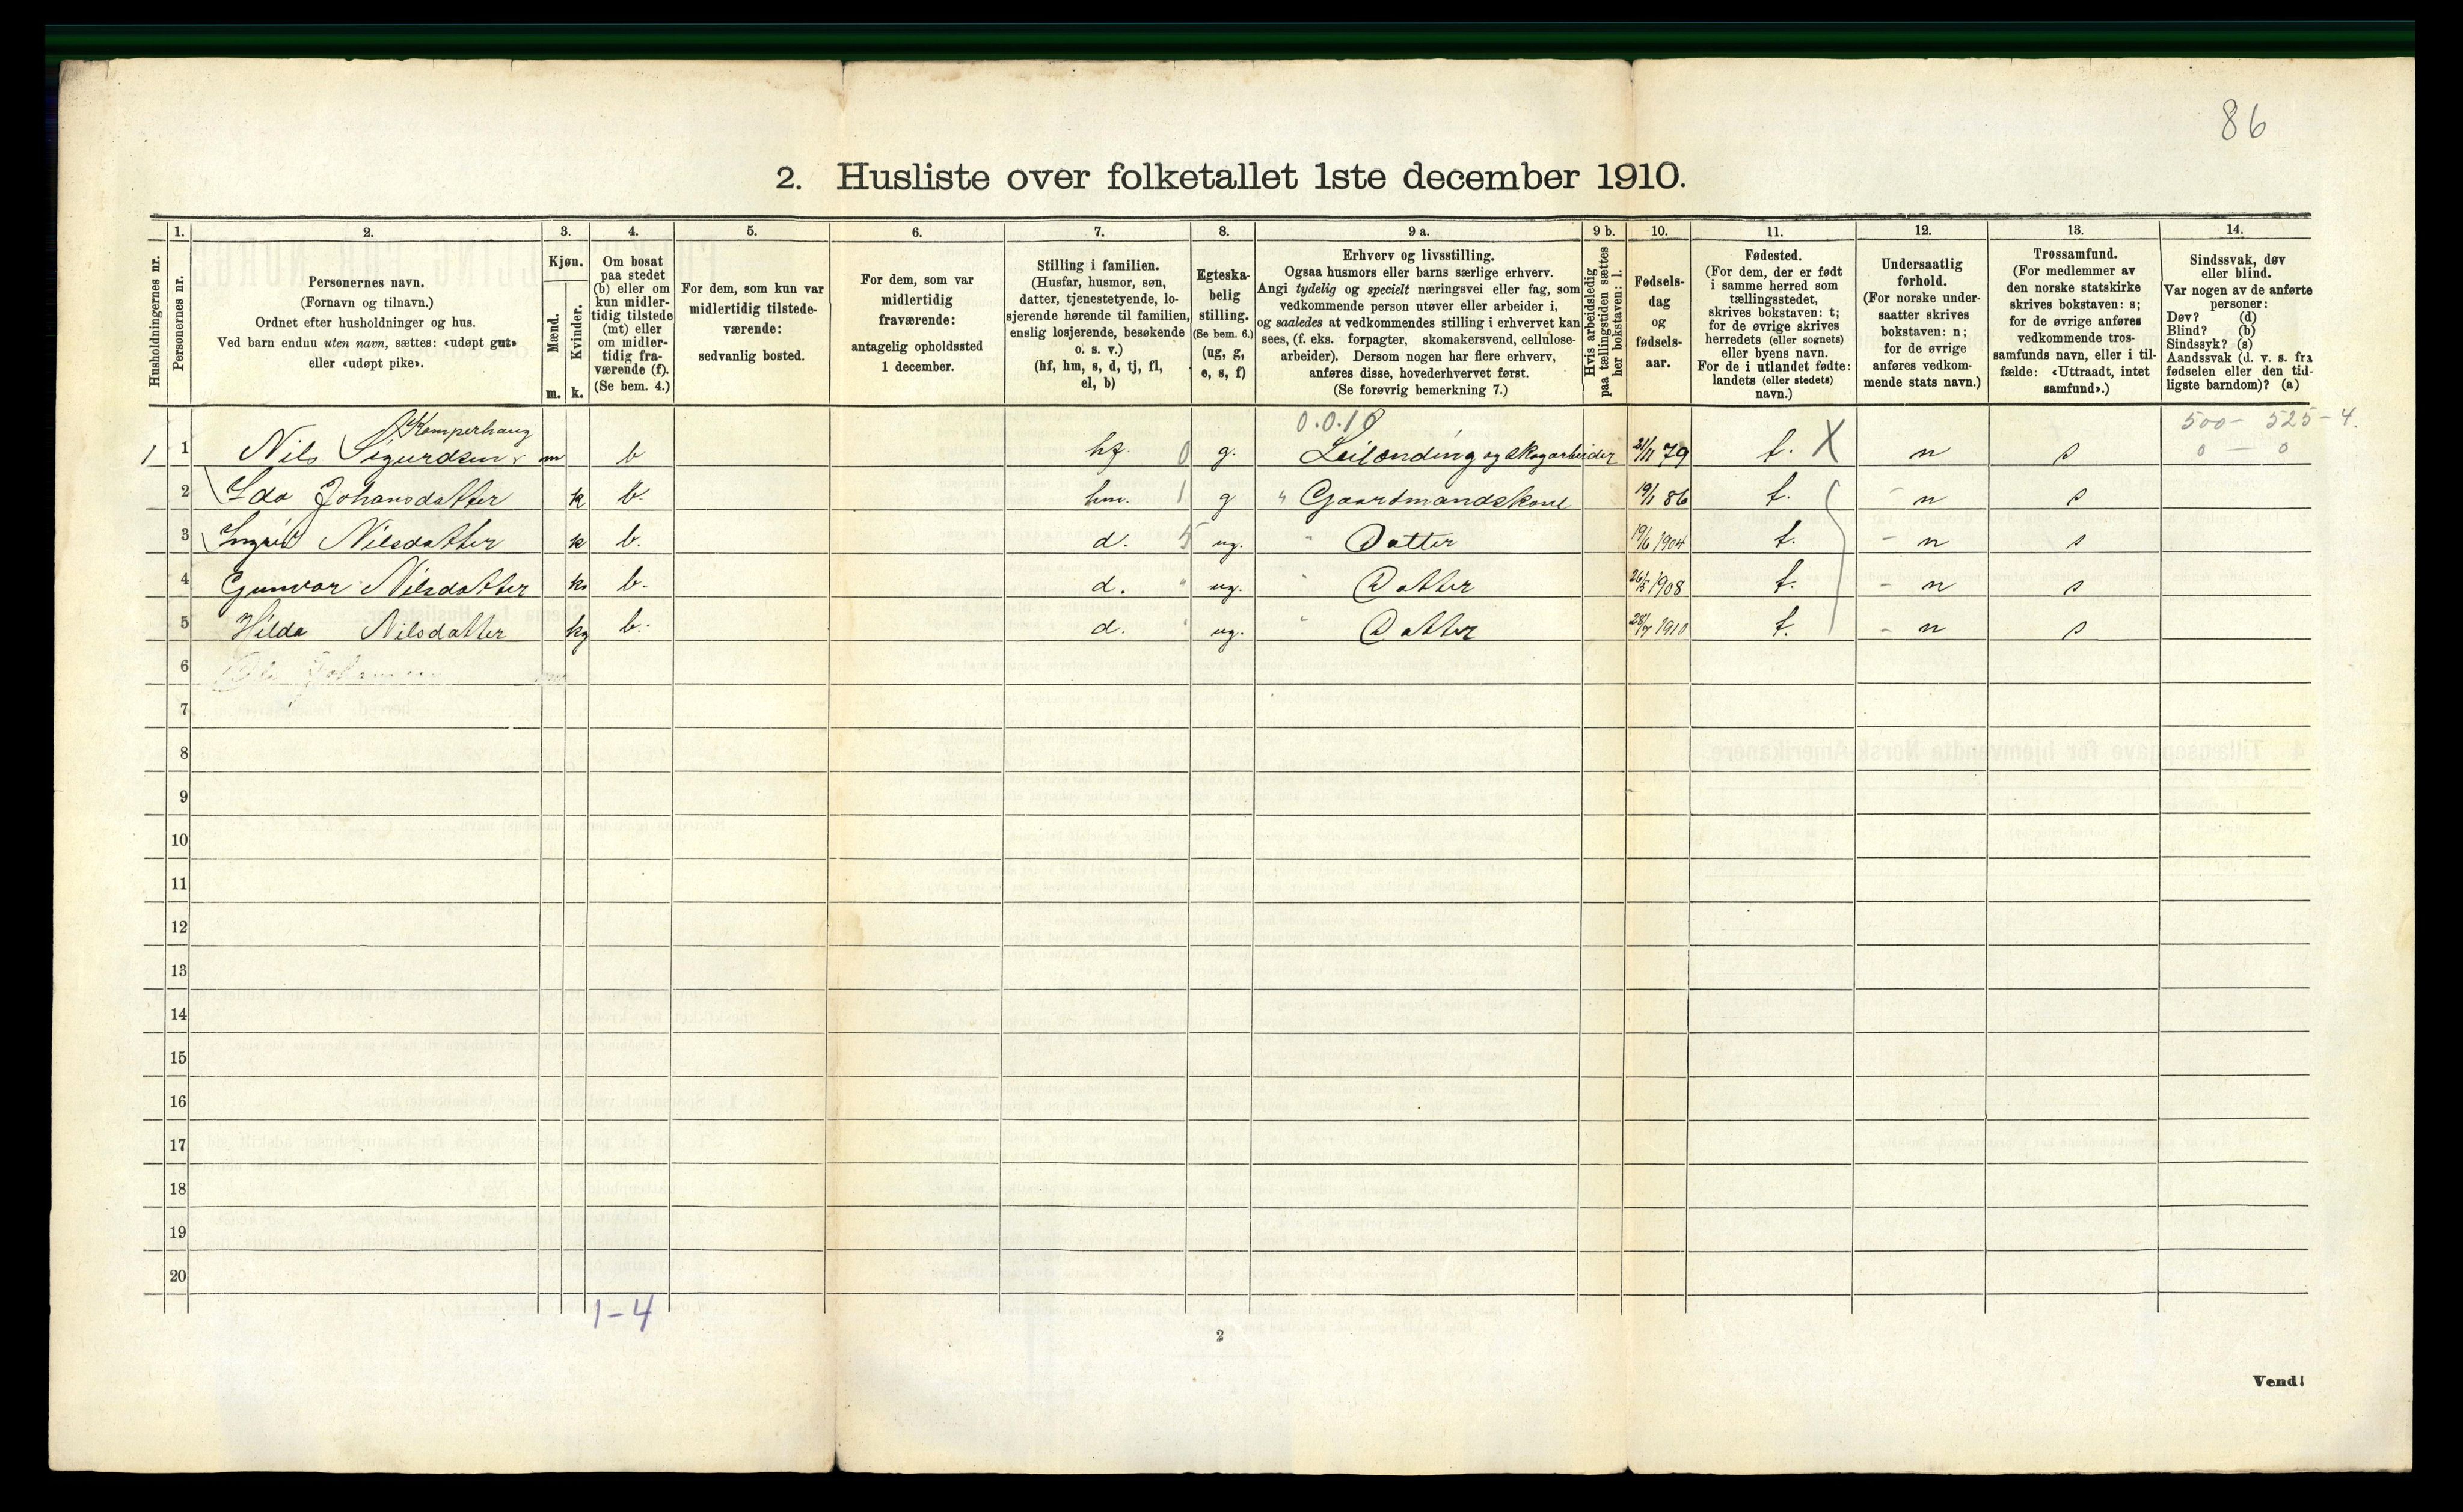 86
2. Husliste over folketallet 1ste december 1910.
Husholdningernes nr.
1.
Personernes nr.
2.
Personernes navn.
(Fornavn og tilnavn.)
Ordnet efter husholdninger og hus.
Ved barn endnu uten navn, sættes: «udøpt gut»
eller «udøpt pike».
3.
Kjøn.
Mænd.
Kvinder.
m. k.
4.
Om bosat
paa stedet
(b) eller om
kun midler-
tidig tilstede
(mt) eller
om midler-
tidig fra-
værende (f).
(Se bem. 4.)
5.
For dem, som kun var
midlertidig tilstede-
værende:
sedvanlig bosted.
6.
For dem, som var
midlertidig
fraværende:
antagelig opholdssted
1 december.
7.
Stilling i familien.
(Husfar, husmor, søn,
datter, tjenestetyende, lo-
sjerende hørende til familien,
enslig losjerende, besøkende
o. s. v.)
(hf, hm, s, d, tj, fl,
el, b)
8.
Egteska-
belig
stilling.
(Se bem. 6.)
(ug, g,
e, s, f)
9 a.
Erhverv og livsstilling.
Ogsaa husmors eller barns særlige erhverv.
Angi tydelig og specielt næringsvei eller fag, som
vedkommende person utøver eller arbeider i,
og saaledes at vedkommendes stilling i erhvervet kan
sees, (f. eks. forpagter, skomakersvend, cellulose-
arbeider). Dersom nogen har flere erhverv,
anføres disse, hovederhvervet først.
(Se forøvrig bemerkning 7.)
9 b.
Hvis arbeidsledig
paa tællingstiden sættes
her bokstaven: l.
10.
Fødsels-
dag
og
fødsels-
aar.
11.
Fødested.
(For dem, der er født
i samme herred som
tællingsstedet,
skrives bokstaven: t;
for de øvrige skrives
herredets (eller sognets)
eller byens navn.
For de i utlandet fødte:
landets (eller stedets)
navn.)
12.
Undersaatlig
forhold.
(For norske under-
saatter skrives
bokstaven: n;
for de øvrige
anføres vedkom-
mende stats navn.)
13.
Trossamfund.
(For medlemmer av
den norske statskirke
skrives bokstaven: s;
for de øvrige anføres
vedkommende tros-
samfunds navn, eller i til-
fælde: «Uttraadt, intet
samfund».)
14.
Sindssvak, døv
eller blind.
Var nogen av de anførte
personer:
Døv? (d)
Blind? (b)
Sindssyk? (s)
Aandssvak (d. v. s. fra
fødselen eller den tid-
ligste barndom)? (a)
Kamperhaug 0.0.10 500 - 525 - 4.
1 1 Nils Sigurdsen m b hf. 0 g. Leilænding og skogarbeider 21/11 79 t. X n s 0 — 0
2 Ida Johansdatter k b. hm. 1 g " Gaardmandskone 19/1 86 t. - n s
3 Ingrid Nilsdatter k b. d. 5 ug. " Datter 19/6 1904 t. - n s
4 Gunvor Nilsdatter k b. d. " ug. " Datter 26/5 1908 t. - n s
5 Hilda Nilsdatter k b. d. " ug. " Datter 28/7 1910 t. - n s
6 Ole Johansen
7
8
9
10
11
12
13
14
15
16
17
18
19
20
1-4
2
Vend!